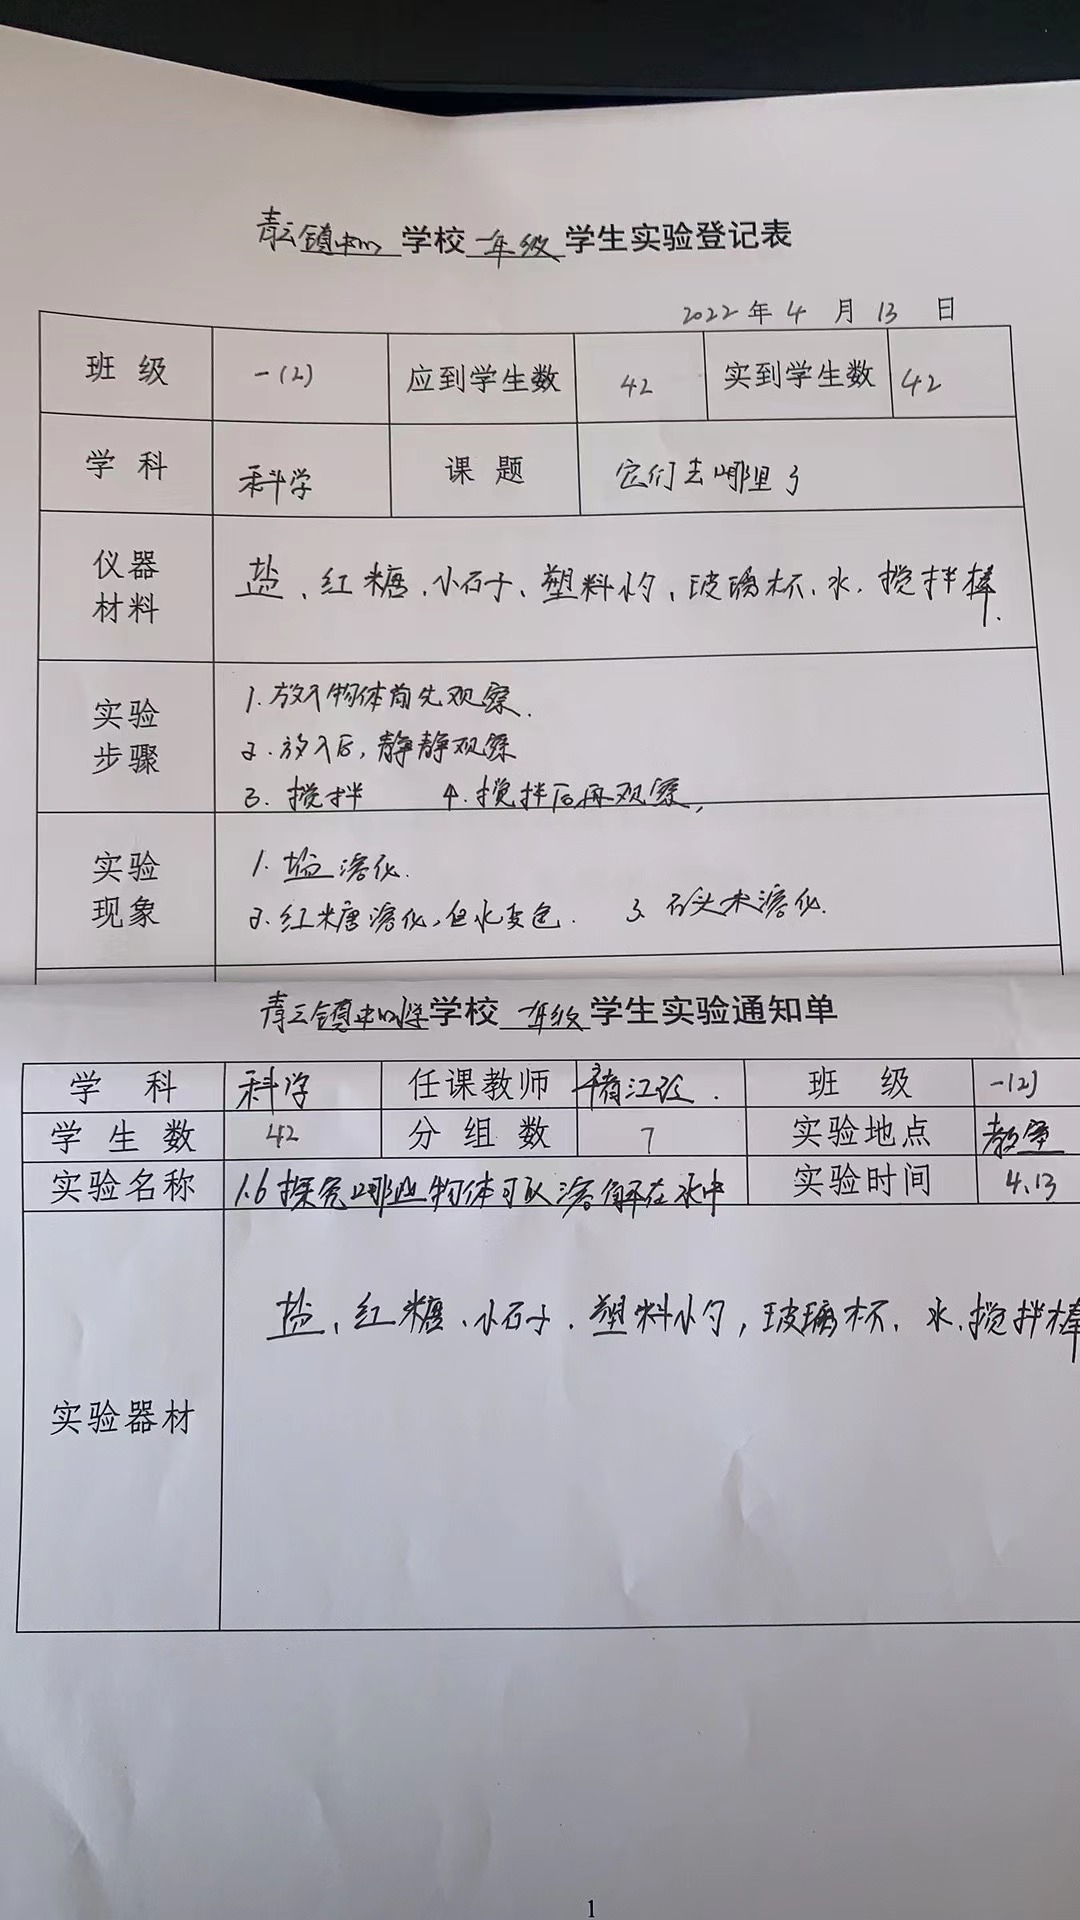 青云镇中心学校一年级学生实验登记表
2022年4月13日
班级 一(2) 应到学生数 42 实到学生数 42
学科 科学 课题 它们去哪里了
仪器材料 盐、红糖、小石子、塑料小勺、玻璃杯、水、搅拌棒.
实验步骤 1.放入物体前先观察.
2.放入后,静静观察
3.搅拌 4.搅拌后再观察,
实验现象 1.盐溶化.
2.红糖溶化,但水变色. 3.石头未溶化.
青云镇中心小学学校一年级学生实验通知单
学科 科学 任课教师 班级 一(2)
学生数 42 分组数 7 实验地点 教室
实验名称 1.6探究哪些物体可以溶解在水中 实验时间 4.13
实验器材 盐、红糖、小石子、塑料小勺,玻璃杯、水、搅拌棒
1